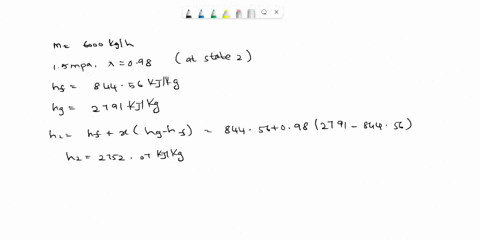 m = 6000 kg/h
1.5 mpa, x = 0.98 (at state 2)
hf = 844.56 KJ/Kg
hg = 2791 KJ/Kg
h2 = hf + x (hg - hf) = 844.56 + 0.98 (2791 - 844.56)
h2 = 2752.07 KJ/Kg